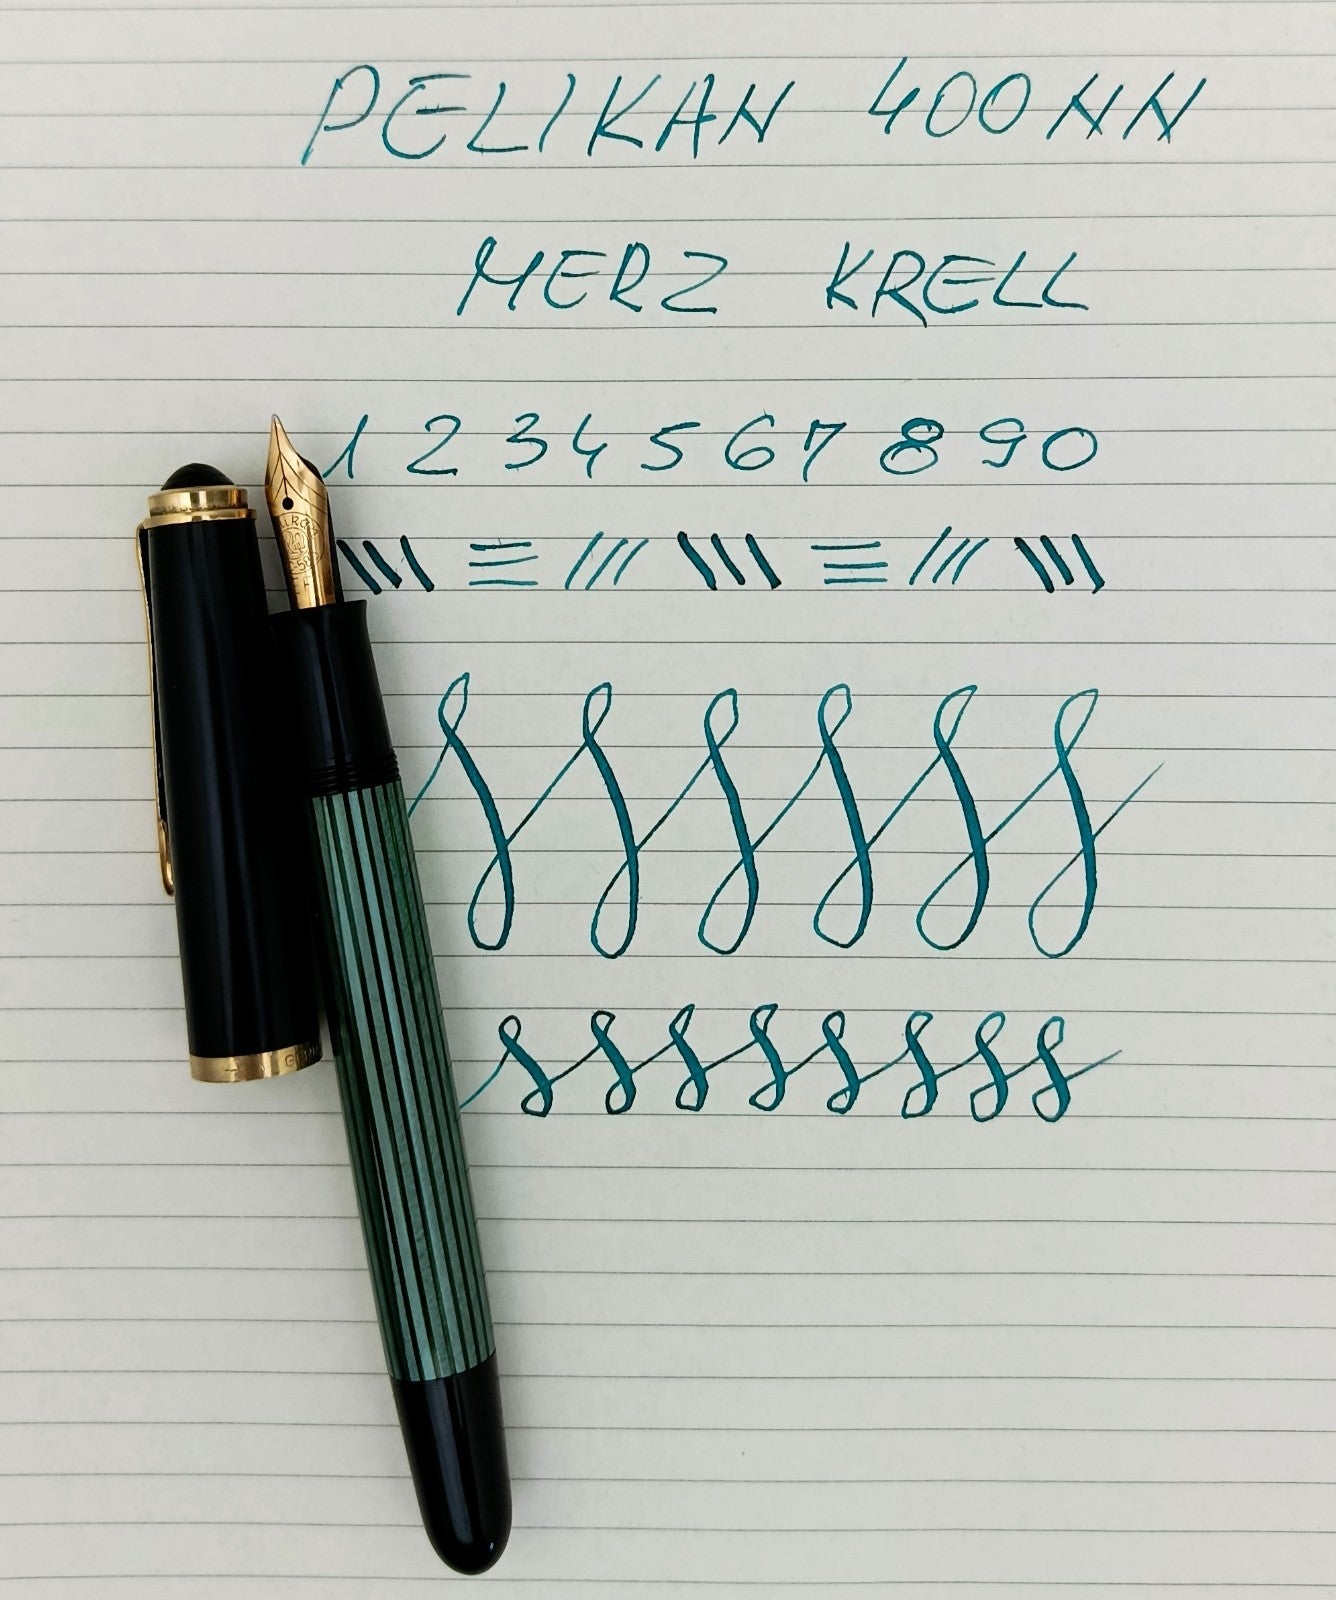 PELIKAN 400NN
MERZ KRELL
1 2 3 4 5 6 7 8 9 0